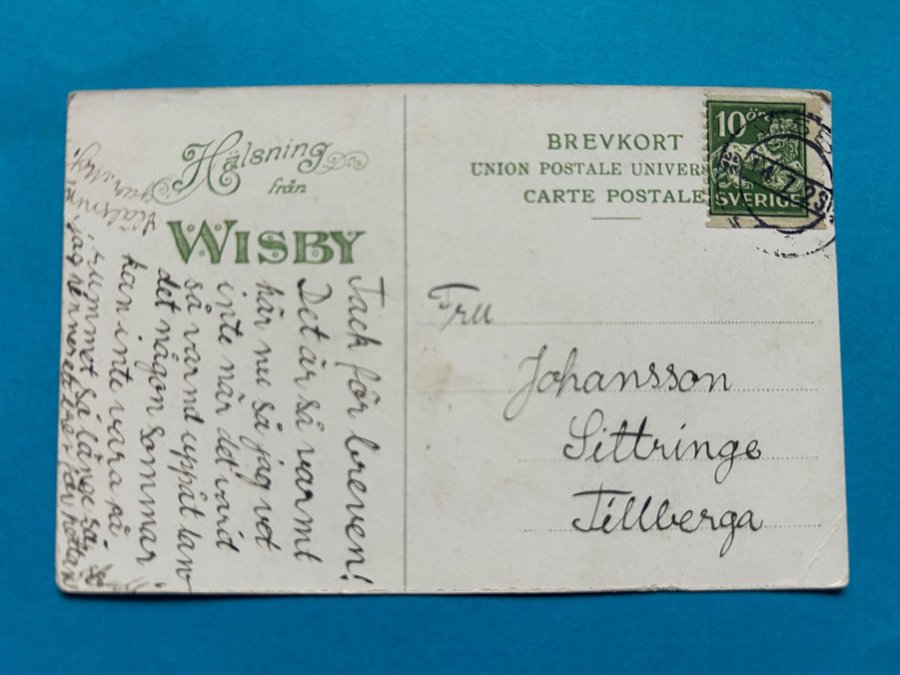 Hälsning
från
WISBY
BREVKORT
UNION POSTALE UNIVERS
CARTE POSTALE
10 ÖRE
SVERIGE
Fru
Johansson
Sittringe
Tillberga
Tack för breven!
Det är så varmt
här nu så jag vet
inte när det varit
så varmt uppåt lan
det någon sommar
kan inte vara på
rummet så länge så
jag